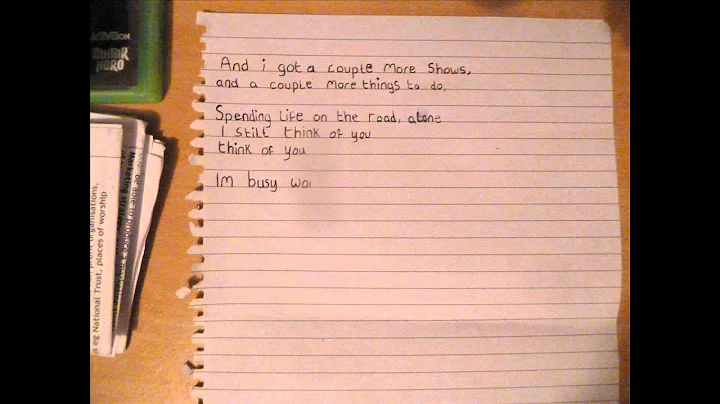 ACTIVISION
GUITAR
HERO
And i got a couple more shows,
and a couple more things to do,
Spending life on the road, alone
I still think of you
think of you
Im busy wo
organisations,
s eg National Trust, places of worship